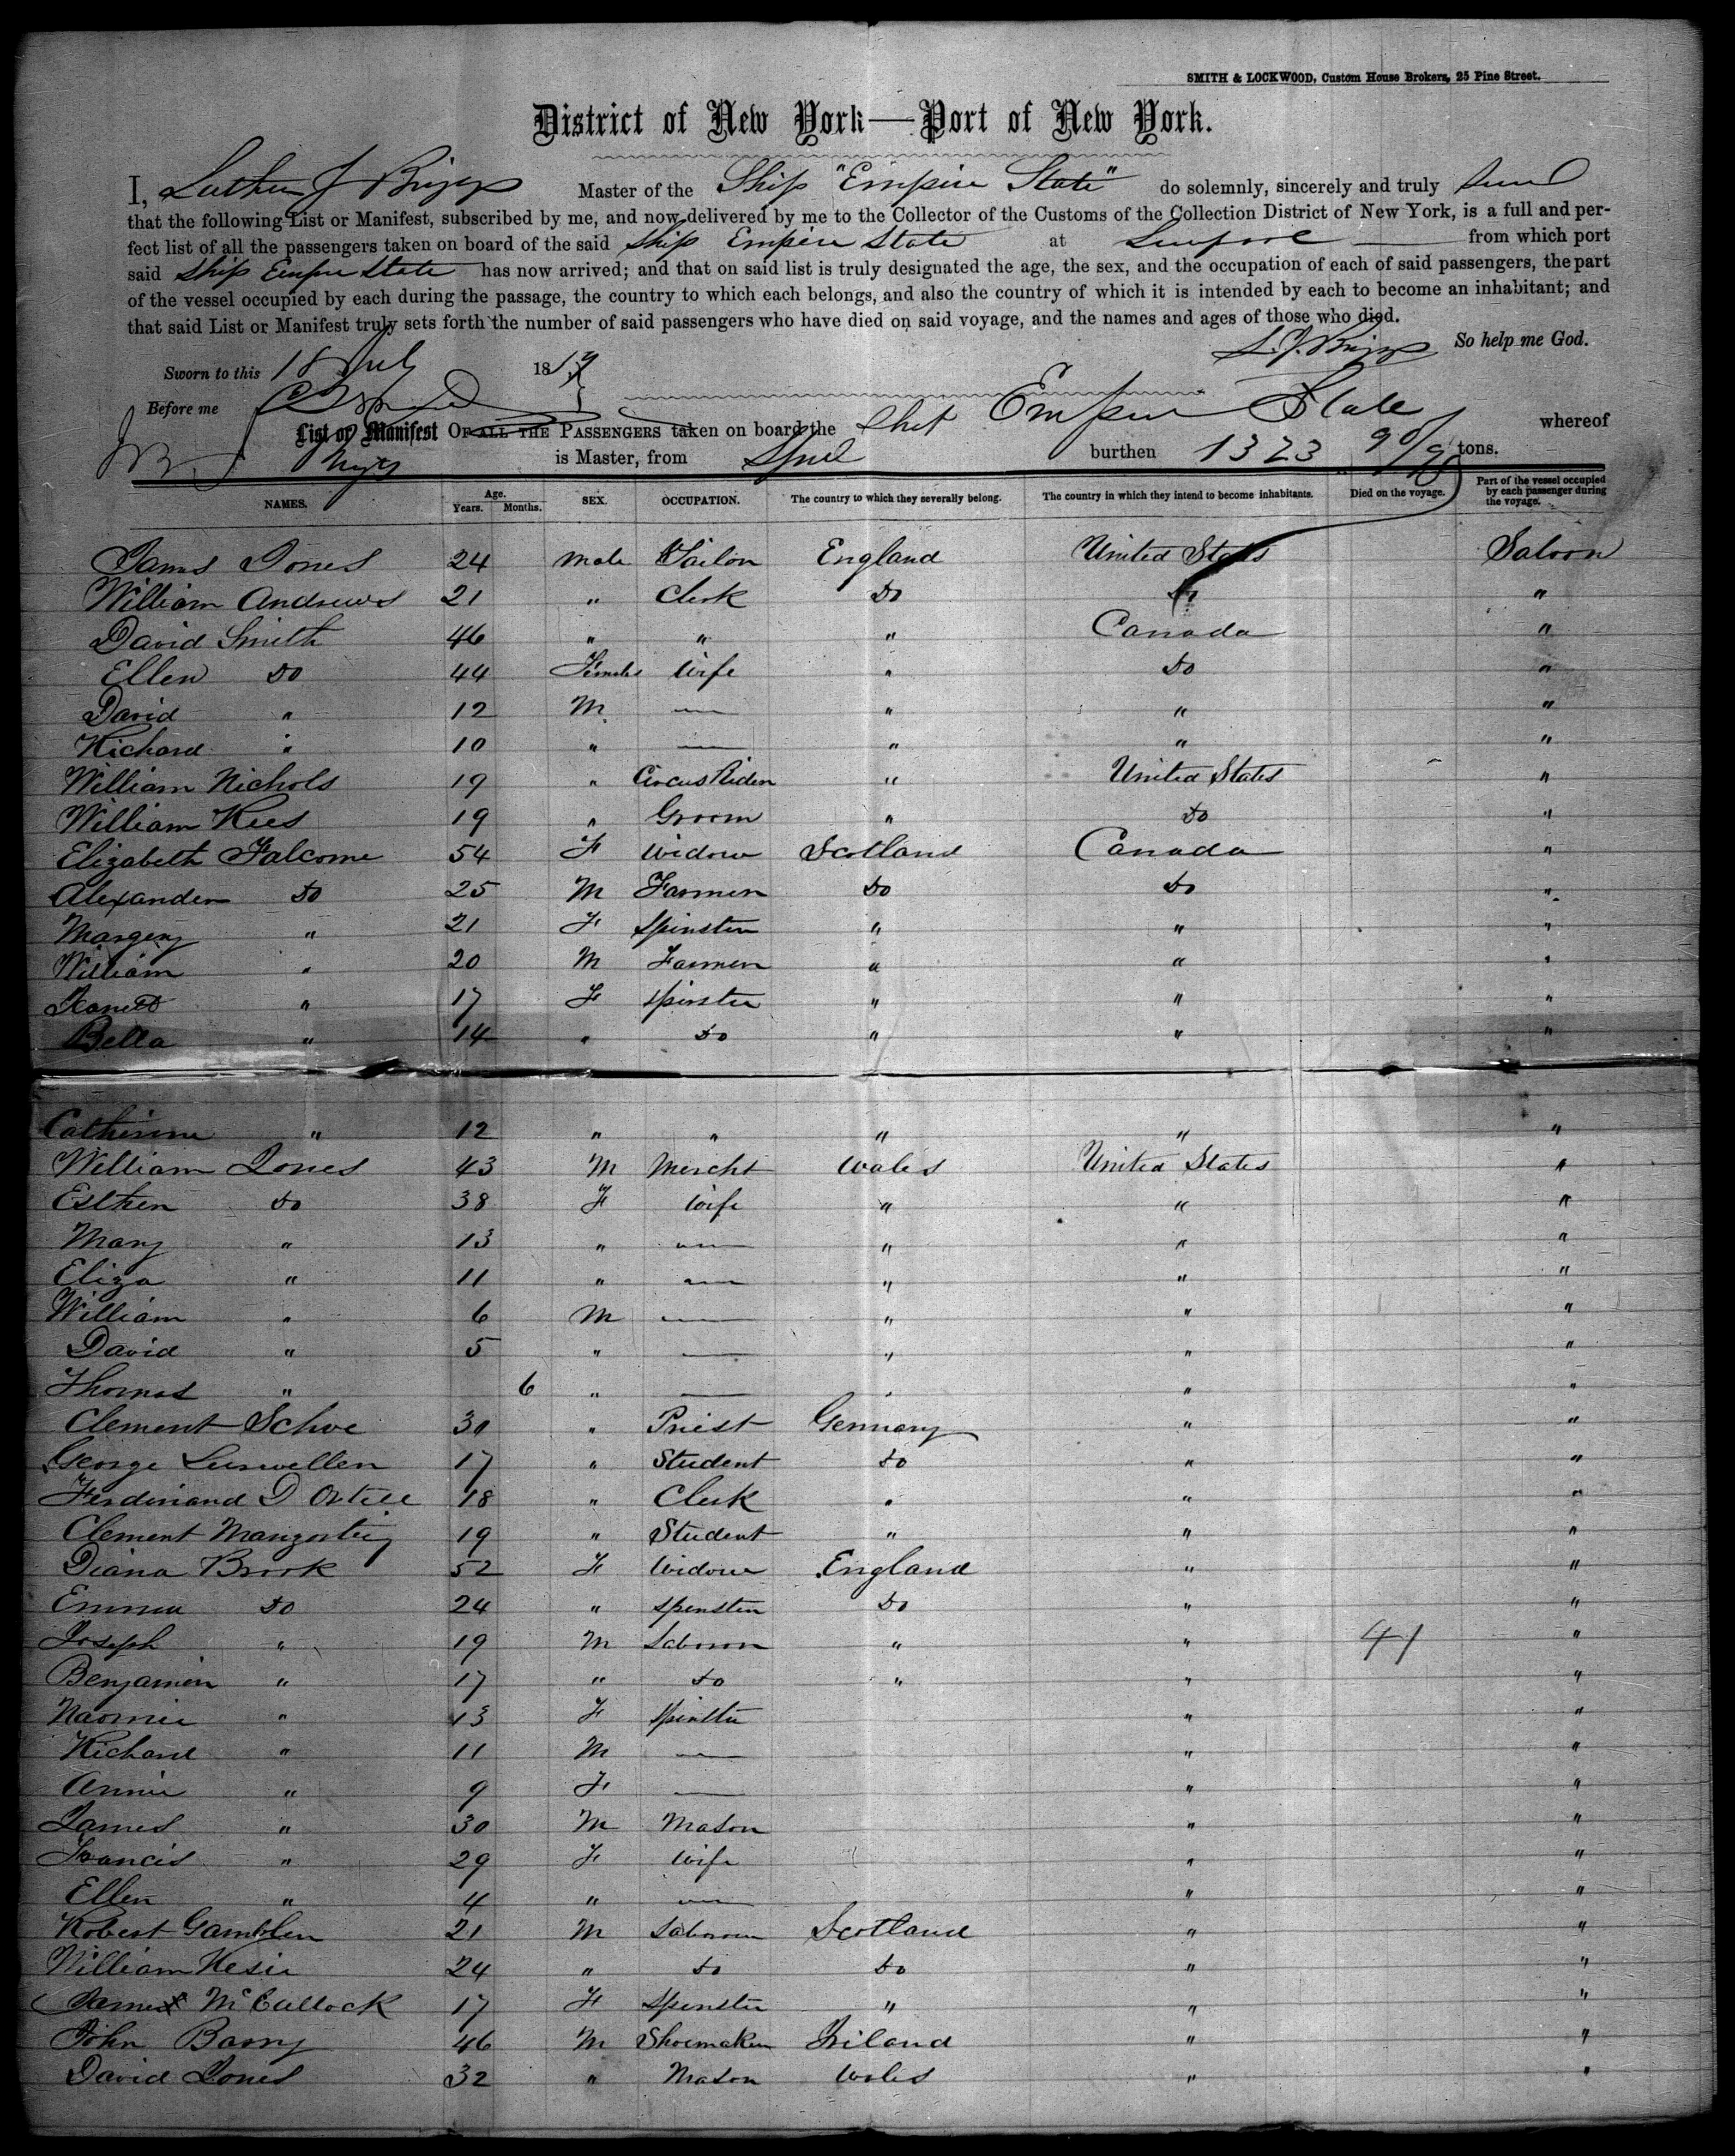 SMITH & LOCKWOOD, Custom House Brokers, 25 Pine Street.
District of New York—Port of New York.
I, Luther J Briggs Master of the Ship "Empire State" do solemnly, sincerely and truly
that the following List or Manifest, subscribed by me, and now delivered by me to the Collector of the Customs of the Collection District of New York, is a full and per-
fect list of all the passengers taken on board of the said Ship Empire State at Liverpool from which port
said Ship Empire State has now arrived; and that on said list is truly designated the age, the sex, and the occupation of each of said passengers, the part
of the vessel occupied by each during the passage, the country to which each belongs, and also the country of which it is intended by each to become an inhabitant; and
that said List or Manifest truly sets forth the number of said passengers who have died on said voyage, and the names and ages of those who died.
L. J. Briggs So help me God.
Sworn to this 18 July 18
Before me
List or Manifest OF ALL THE PASSENGERS taken on board the Ship Empire State whereof
Briggs is Master, from Lpool burthen 1323 90/95 tons.
NAMES. Age. Years. Months. SEX. OCCUPATION. The country to which they severally belong. The country in which they intend to become inhabitants. Died on the voyage. Part of the vessel occupied by each passenger during the voyage.
James Jones 24 Male Sailor England United States Saloon
William Andrews 21 " Clerk Do Do "
David Smith 46 " " " Canada "
Ellen Do 44 Female Wife " Do "
David " 12 M — " " "
Richard " 10 " — " " "
William Nichols 19 " Circus Rider " United States "
William Rees 19 " Groom " Do "
Elizabeth Falcome 54 F Widow Scotland Canada "
Alexander Do 25 M Farmer Do Do "
Margery " 21 F Spinster " " "
William " 20 M Farmer " " "
Janett " 17 F Spinster " " "
Bella " 14 " Do " " "
Catherine " 12 " " " " "
William Jones 43 M Mercht Wales United States "
Esther Do 38 F Wife " " "
Mary " 13 " — " " "
Eliza " 11 " — " " "
William " 6 M — " " "
David " 5 " — " " "
Thomas " 6 " — " " "
Clement Schve 30 " Priest Germany " "
George 17 " Student Do " "
Ferdinand D 18 " Clerk " " "
Clement 19 " Student " " "
Diana Brook 52 F Widow England " "
Emma Do 24 " Spinster Do " "
Joseph " 19 M Laborer " " 41 "
Benjamin " 17 " Do " " "
Naomie " 13 F Spinster " "
Richard " 11 M — " "
Annie " 9 F — " "
James " 30 M Mason " "
Francis " 29 F Wife " "
Ellen " 4 " — " "
Robert Gambler 21 M Laborer Scotland " "
William Hesie 24 " Do Do " "
McCullock 17 F Spinster " " "
John Barry 46 M Shoemaker Ireland " "
David Jones 32 " Mason Wales " "